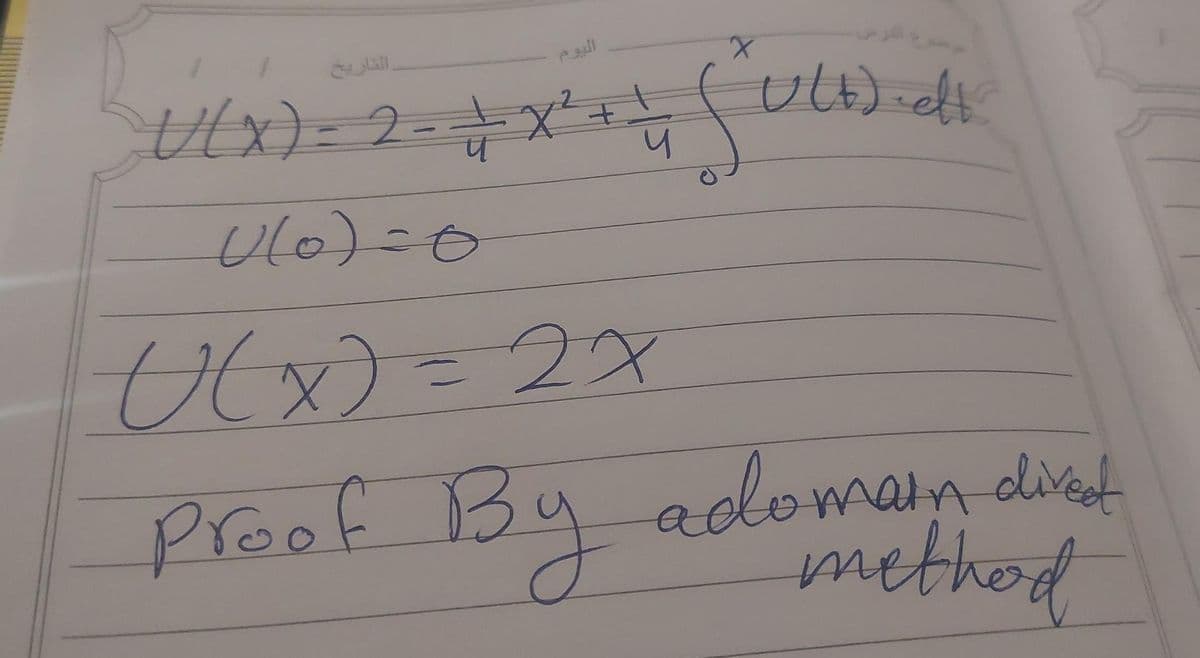 التاريخ
اليوم
U(x) = 2 - 1/4 x² + 1/4 ∫₀ˣ U(t) . dt
U(0) = 0
U(x) = 2x
Proof By adomain direct
method